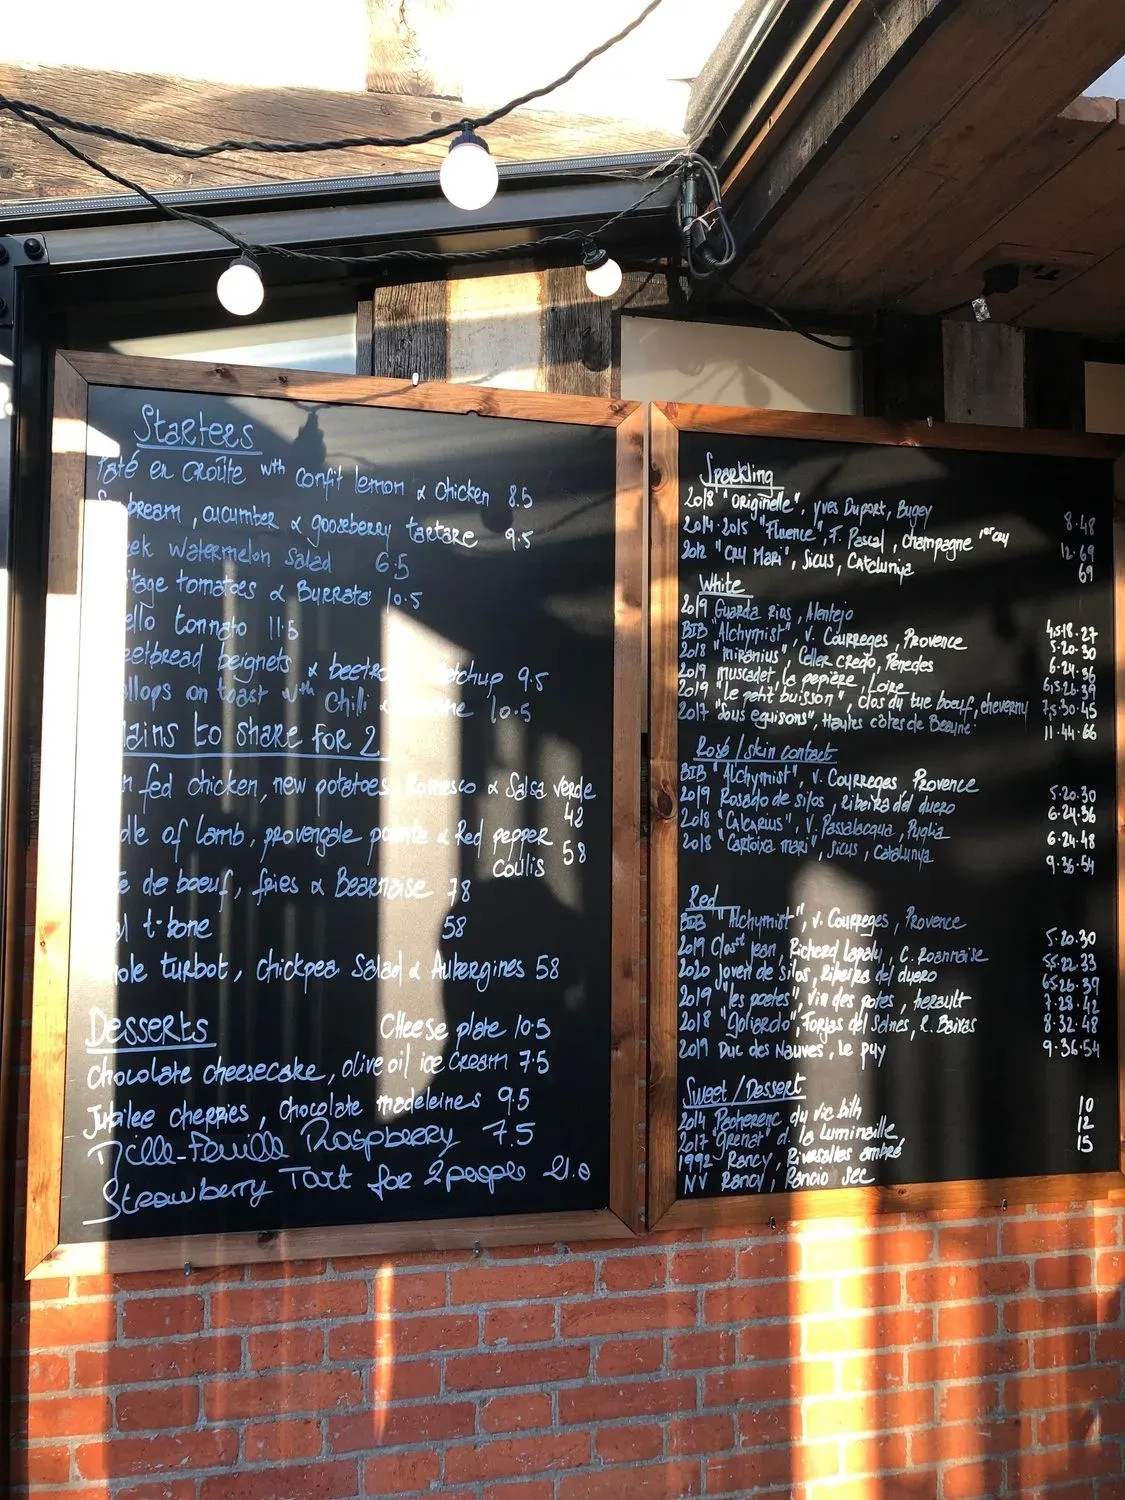 Starters
Paté en croûte with confit lemon & chicken 8.5
bream, cucumber & gooseberry tartare 9.5
watermelon salad 6.5
tomatoes & Burrata 10.5
tonnato 11.5
beignets & 9.5
on toast with chilli & 10.5
Mains to share for 2
fed chicken, new potatoes, Romesco & Salsa verde
42
of lamb, provençale & Red pepper
coulis 58
de boeuf, fries & Bearnaise 78
t-bone 58
turbot, chickpea salad & Aubergines 58
Desserts
Cheese plate 10.5
chocolate cheesecake, olive oil ice cream 7.5
Jubilee cherries, chocolate madeleines 9.5
Mille-Feuille Raspberry 7.5
Strawberry Tart for 2 people 21.0
Sparkling
2018 "originelle", yves Duport, Bugey 8.48
2014-2015 "Fluence", F. Pascal, champagne 1er cru 12.69
2012 "Cru Mari", Sicus, Catalunya 69
White
2019 Guarda Rios, Alentejo 4,5.18.27
BIB "Alchymist", V. Courreges, Provence 5.20.30
2018 "miranius", Celler credo, Penedes 6.24.36
2019 muscadet, la pepière, Loire 6,5.26.39
2019 "Le petit buisson", clos du tue boeuf, cheverny 7,5.30.45
2017 "Sous eguisons", Hautes côtes de Beaune 11.44.66
Rosé / skin contact
BIB "Alchymist", V. Courreges, Provence 5.20.30
2019 Rosado de silos, ribeira del duero 6.24.36
2018 "Calcarius", V. Passalacqua, Puglia 6.24.48
2018 "Cartoixa mari", Sicus, Catalunya 9.36.54
Red
BIB "Alchymist", V. Courreges, Provence 5.20.30
2019 Clos st Jean, Richard Lapalu, C. Roannaise
2020 Joven de Silos, Ribeira del duero
2019 "les poetes", Vin des potes, herault 7.28.42
2018 "Goliardo", Forjas del Salnes, R. Baixas 8.32.48
2019 Duc des Nauves, le puy 9.36.54
Sweet / Dessert
2014 Pacherenc du vic bilh 10
2017 "grenat" d. la Luminaille, 12
1992 Rancy, Rivesaltes ambré, 15
NV Rancy, Rancio Sec